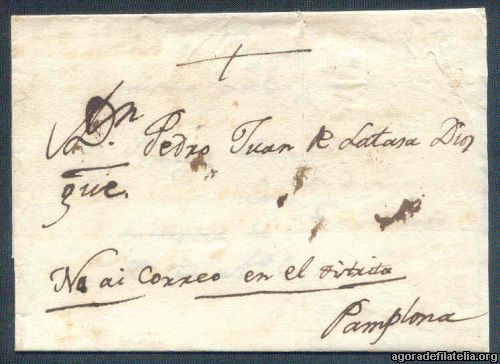 A Dn. Pedro Juan de Latasa Dios
gue.
No ai Correo en el
Pamplona
agoradefilatelia.org